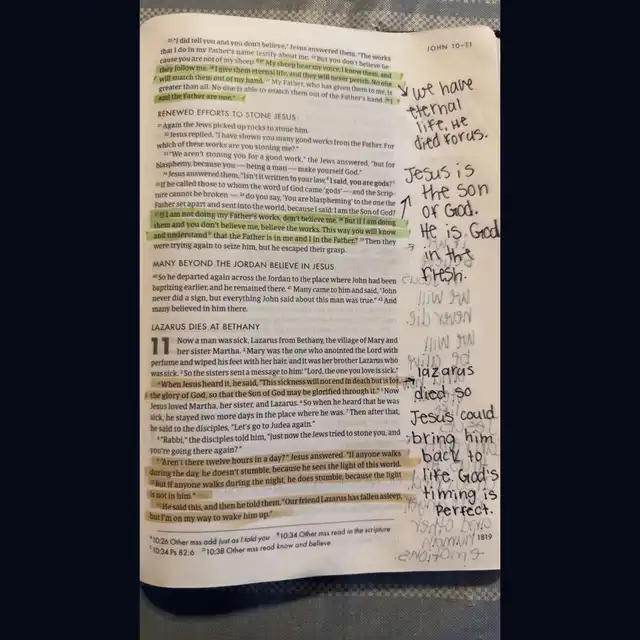 JOHN 10–11
25 "I did tell you and you don't believe," Jesus answered them. "The works
that I do in my Father's name testify about me. 26 But you don't believe be-
cause you are not of my sheep. 27 My sheep hear my voice, I know them, and
they follow me. 28 I give them eternal life, and they will never perish. No one
will snatch them out of my hand. 29 My Father, who has given them to me, is
greater than all. No one is able to snatch them out of the Father's hand. 30 I
and the Father are one."
RENEWED EFFORTS TO STONE JESUS
31 Again the Jews picked up rocks to stone him.
32 Jesus replied, "I have shown you many good works from the Father. For
which of these works are you stoning me?"
33 "We aren't stoning you for a good work," the Jews answered, "but for
blasphemy, because you — being a man — make yourself God."
34 Jesus answered them, "Isn't it written in your law, I said, you are gods?
35 If he called those to whom the word of God came 'gods' — and the Scrip-
ture cannot be broken — 36 do you say, 'You are blaspheming' to the one the
Father set apart and sent into the world, because I said: I am the Son of God?
37 If I am not doing my Father's works, don't believe me. 38 But if I am doing
them and you don't believe me, believe the works. This way you will know
and understand that the Father is in me and I in the Father." 39 Then they
were trying again to seize him, but he escaped their grasp.
MANY BEYOND THE JORDAN BELIEVE IN JESUS
40 So he departed again across the Jordan to the place where John had been
baptizing earlier, and he remained there. 41 Many came to him and said, "John
never did a sign, but everything John said about this man was true." 42 And
many believed in him there.
LAZARUS DIES AT BETHANY
11 Now a man was sick, Lazarus from Bethany, the village of Mary and
her sister Martha. 2 Mary was the one who anointed the Lord with
perfume and wiped his feet with her hair, and it was her brother Lazarus who
was sick. 3 So the sisters sent a message to him: "Lord, the one you love is sick."
4 When Jesus heard it, he said, "This sickness will not end in death but is for
the glory of God, so that the Son of God may be glorified through it." 5 Now
Jesus loved Martha, her sister, and Lazarus. 6 So when he heard that he was
sick, he stayed two more days in the place where he was. 7 Then after that,
he said to the disciples, "Let's go to Judea again."
8 "Rabbi," the disciples told him, "just now the Jews tried to stone you, and
you're going there again?"
9 "Aren't there twelve hours in a day?" Jesus answered. "If anyone walks
during the day, he doesn't stumble, because he sees the light of this world.
10 But if anyone walks during the night, he does stumble, because the light
is not in him."
11 He said this, and then he told them, "Our friend Lazarus has fallen asleep,
but I'm on my way to wake him up."
10:26 Other mss add just as I told you 10:34 Other mss read in the scripture
10:34 Ps 82:6 10:38 Other mss read know and believe
we have
eternal
life. He
died for us.
Jesus is
the son
of God.
He is God
in the
flesh.
lazarus
died so
Jesus could
bring him
back to
life. God's
timing is
perfect.
1819